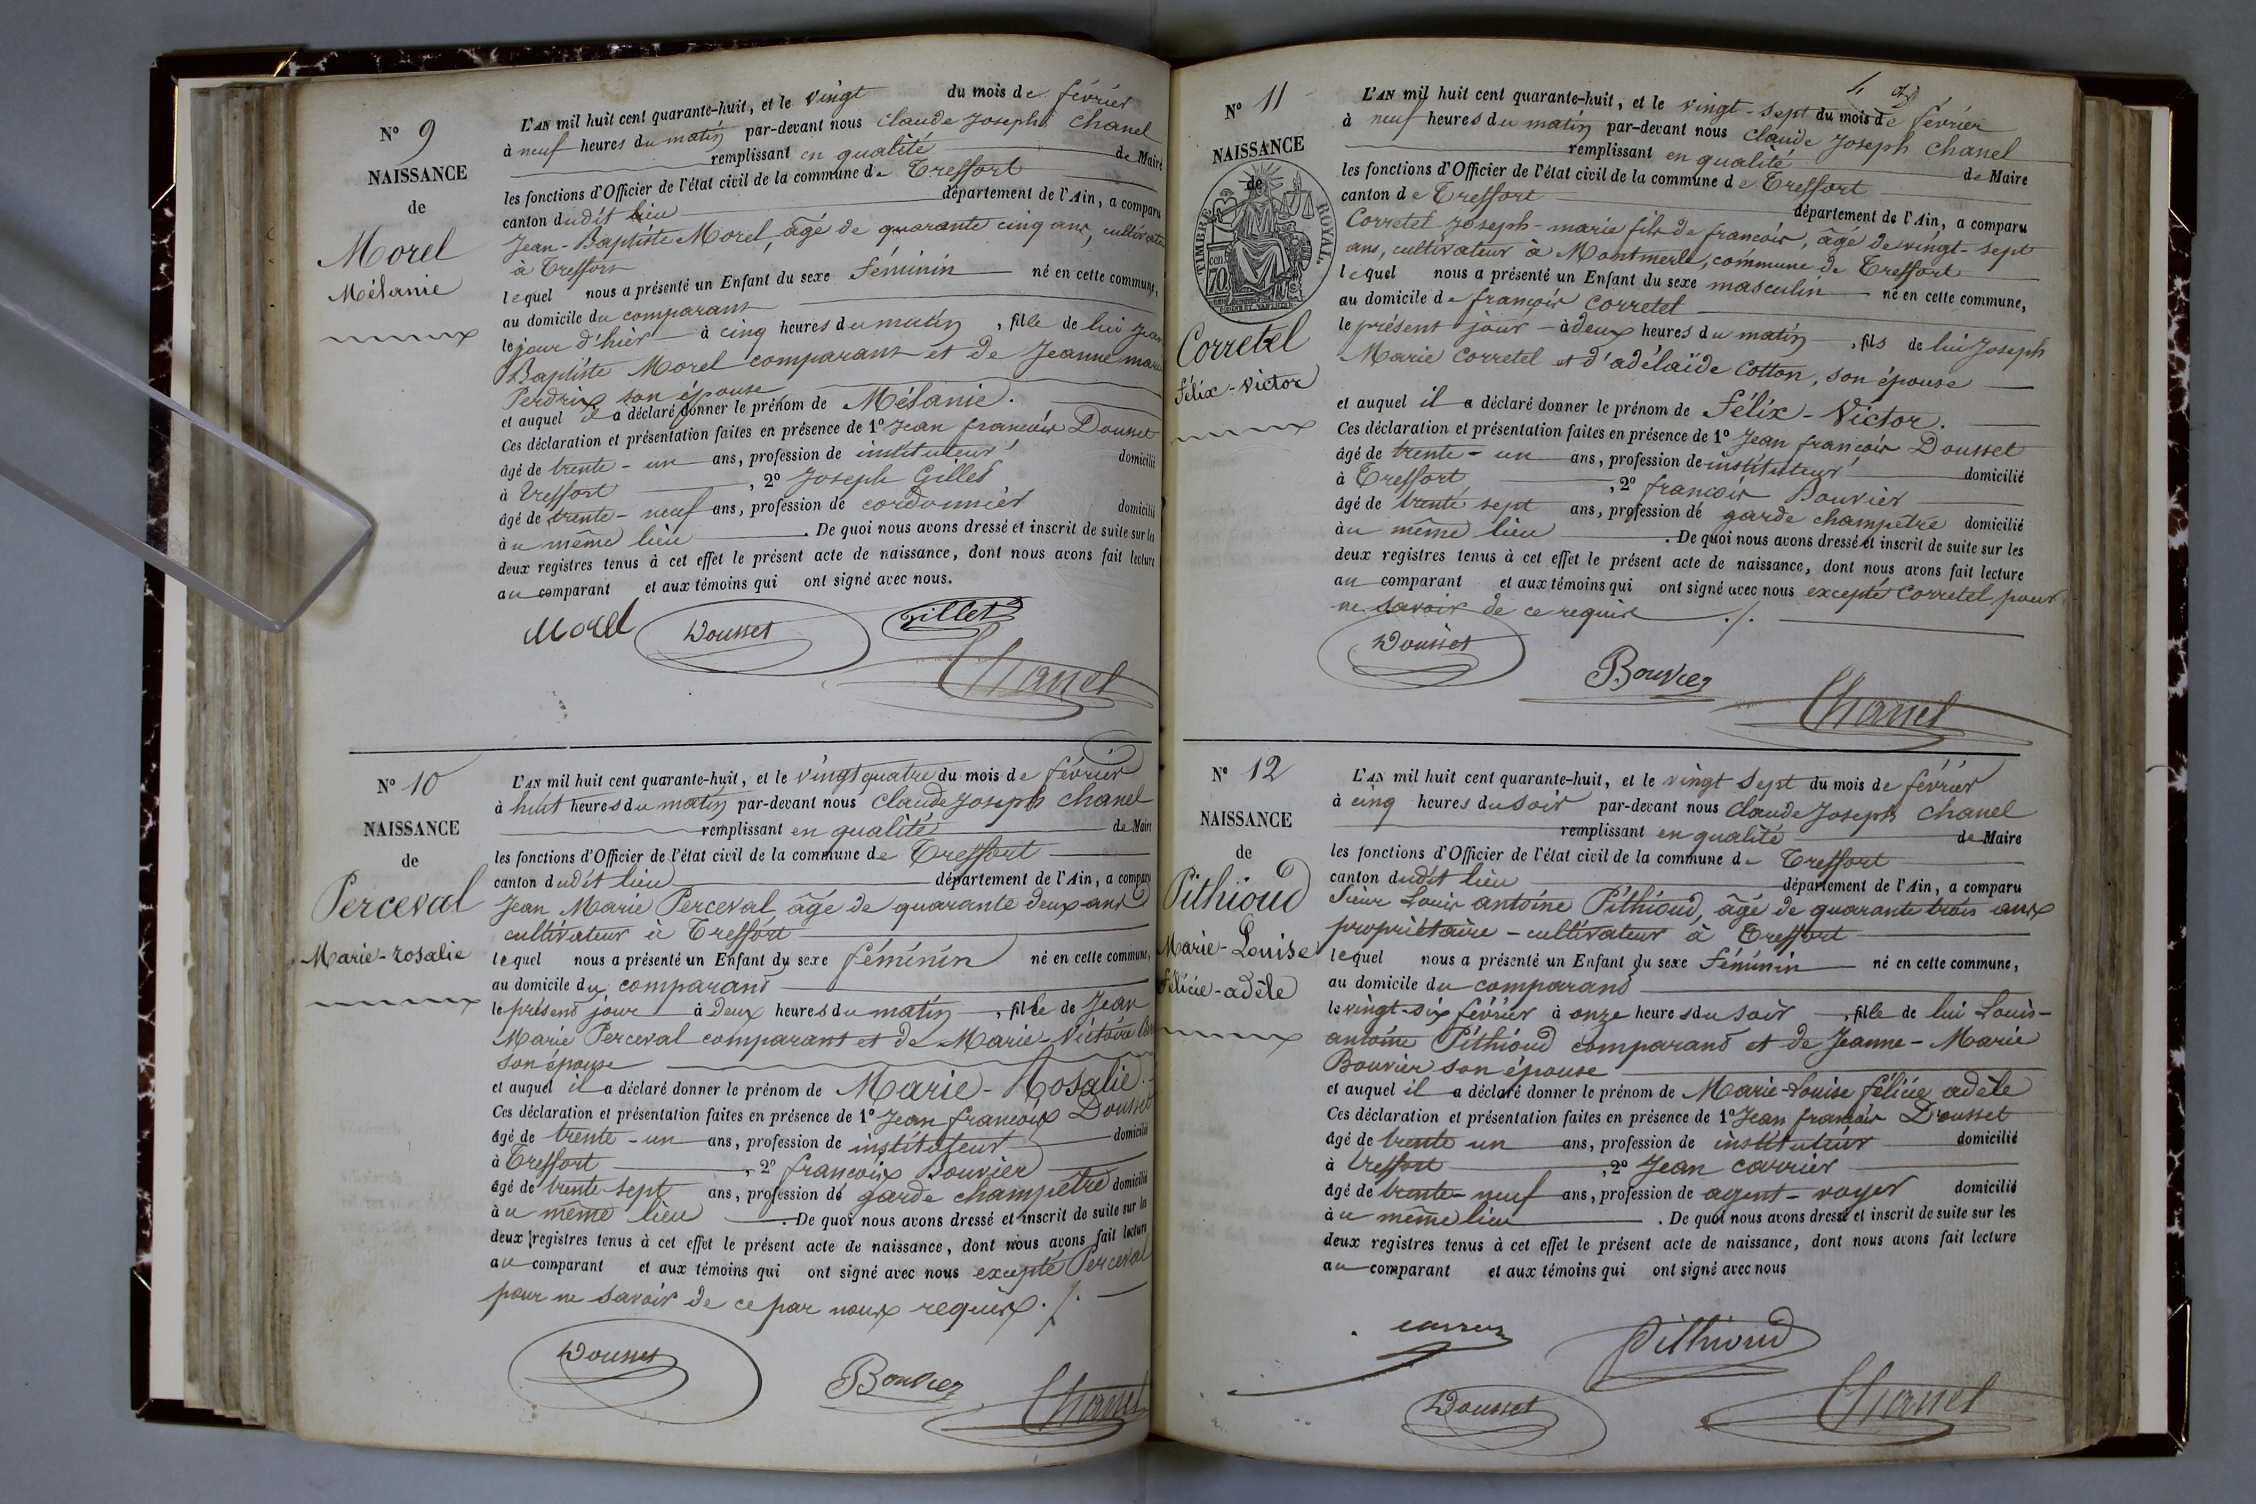 N° 9
NAISSANCE
de
Morel
Mélanie
L'AN mil huit cent quarante-huit, et le vingt du mois de février
à neuf heures du matin par-devant nous Claude Joseph Chanel
remplissant en qualité de Maire
les fonctions d'Officier de l'état civil de la commune de Treffort
canton dudit lieu département de l'Ain, a comparu
Jean-Baptiste Morel, âgé de quarante cinq ans, cultivateur
à Treffort
lequel nous a présenté un Enfant du sexe féminin né en cette commune,
au domicile du comparant
le jour d'hier à cinq heures du matin, fille de lui Jean
Baptiste Morel comparant et de Jeanne marie
Perdrix son épouse
et auquel il a déclaré donner le prénom de Mélanie.
Ces déclaration et présentation faites en présence de 1° Jean françois Dousset
âgé de trente-un ans, profession de instituteur domicilié
à Treffort, 2° Joseph Gillet
âgé de trente-neuf ans, profession de cordonnier domicilié
au même lieu. De quoi nous avons dressé et inscrit de suite sur les
deux registres tenus à cet effet le présent acte de naissance, dont nous avons fait lecture
au comparant et aux témoins qui ont signé avec nous.
Morel Dousset Gillet
Chanel
N° 10
NAISSANCE
de
Perceval
Marie-rosalie
L'AN mil huit cent quarante-huit, et le vingt quatre du mois de février
à huit heures du matin par-devant nous Claude Joseph Chanel
remplissant en qualité de Maire
les fonctions d'Officier de l'état civil de la commune de Treffort
canton dudit lieu département de l'Ain, a comparu
Jean Marie Perceval âgé de quarante deux ans
cultivateur à Treffort
lequel nous a présenté un Enfant du sexe féminin né en cette commune,
au domicile du comparant
le présent jour à deux heures du matin, fille de Jean
Marie Perceval comparant et de Marie-Victoire
son épouse
et auquel il a déclaré donner le prénom de Marie-Rosalie.
Ces déclaration et présentation faites en présence de 1° Jean françois Dousset
âgé de trente-un ans, profession de instituteur domicilié
à Treffort, 2° françois Bouvier
âgé de trente-sept ans, profession de garde champêtre domicilié
au même lieu. De quoi nous avons dressé et inscrit de suite sur les
deux registres tenus à cet effet le présent acte de naissance, dont nous avons fait lecture
au comparant et aux témoins qui ont signé avec nous excepté Perceval
pour ne savoir de ce par nous requis ./.
Dousset Bouvier Chanel
N° 11
NAISSANCE
de
TIMBRE ROYAL
70 cen
Corretel
félix-victor
L'AN mil huit cent quarante-huit, et le vingt-sept du mois de février
à neuf heures du matin par-devant nous Claude Joseph Chanel
remplissant en qualité de Maire
les fonctions d'Officier de l'état civil de la commune de Treffort
canton de Treffort département de l'Ain, a comparu
Corretel Joseph-marie fils de françois, âgé de vingt-sept
ans, cultivateur à Montmerle, commune de Treffort
lequel nous a présenté un Enfant du sexe masculin né en cette commune,
au domicile de françois Corretel
le présent jour à deux heures du matin, fils de lui Joseph
Marie Corretel et d'adélaïde Cotton, son épouse
et auquel il a déclaré donner le prénom de Félix-Victor.
Ces déclaration et présentation faites en présence de 1° Jean françois Dousset
âgé de trente-un ans, profession de instituteur domicilié
à Treffort, 2° françois Bouvier
âgé de trente sept ans, profession de garde champêtre domicilié
au même lieu. De quoi nous avons dressé et inscrit de suite sur les
deux registres tenus à cet effet le présent acte de naissance, dont nous avons fait lecture
au comparant et aux témoins qui ont signé avec nous excepté Corretel pour
ne savoir de ce requis ./.
Dousset
Bouvier
Chanel
N° 12
NAISSANCE
de
Pithioud
Marie-Louise
félicie-adèle
L'AN mil huit cent quarante-huit, et le vingt sept du mois de février
à cinq heures du soir par-devant nous Claude Joseph Chanel
remplissant en qualité de Maire
les fonctions d'Officier de l'état civil de la commune de Treffort
canton dudit lieu département de l'Ain, a comparu
Sieur Louis antoine Pithioud, âgé de quarante trois ans
propriétaire-cultivateur à Treffort
lequel nous a présenté un Enfant du sexe féminin né en cette commune,
au domicile du comparant
le vingt-six février à onze heures du soir, fille de lui Louis-
antoine Pithioud comparant et de Jeanne-Marie
Bouvier son épouse
et auquel il a déclaré donner le prénom de Marie-Louise félicie adèle
Ces déclaration et présentation faites en présence de 1° Jean françois Dousset
âgé de trente un ans, profession de instituteur domicilié
à Treffort, 2° Jean Carrier
âgé de trente-neuf ans, profession de agent-voyer domicilié
au même lieu. De quoi nous avons dressé et inscrit de suite sur les
deux registres tenus à cet effet le présent acte de naissance, dont nous avons fait lecture
au comparant et aux témoins qui ont signé avec nous
Carrier Pithioud
Dousset Chanel